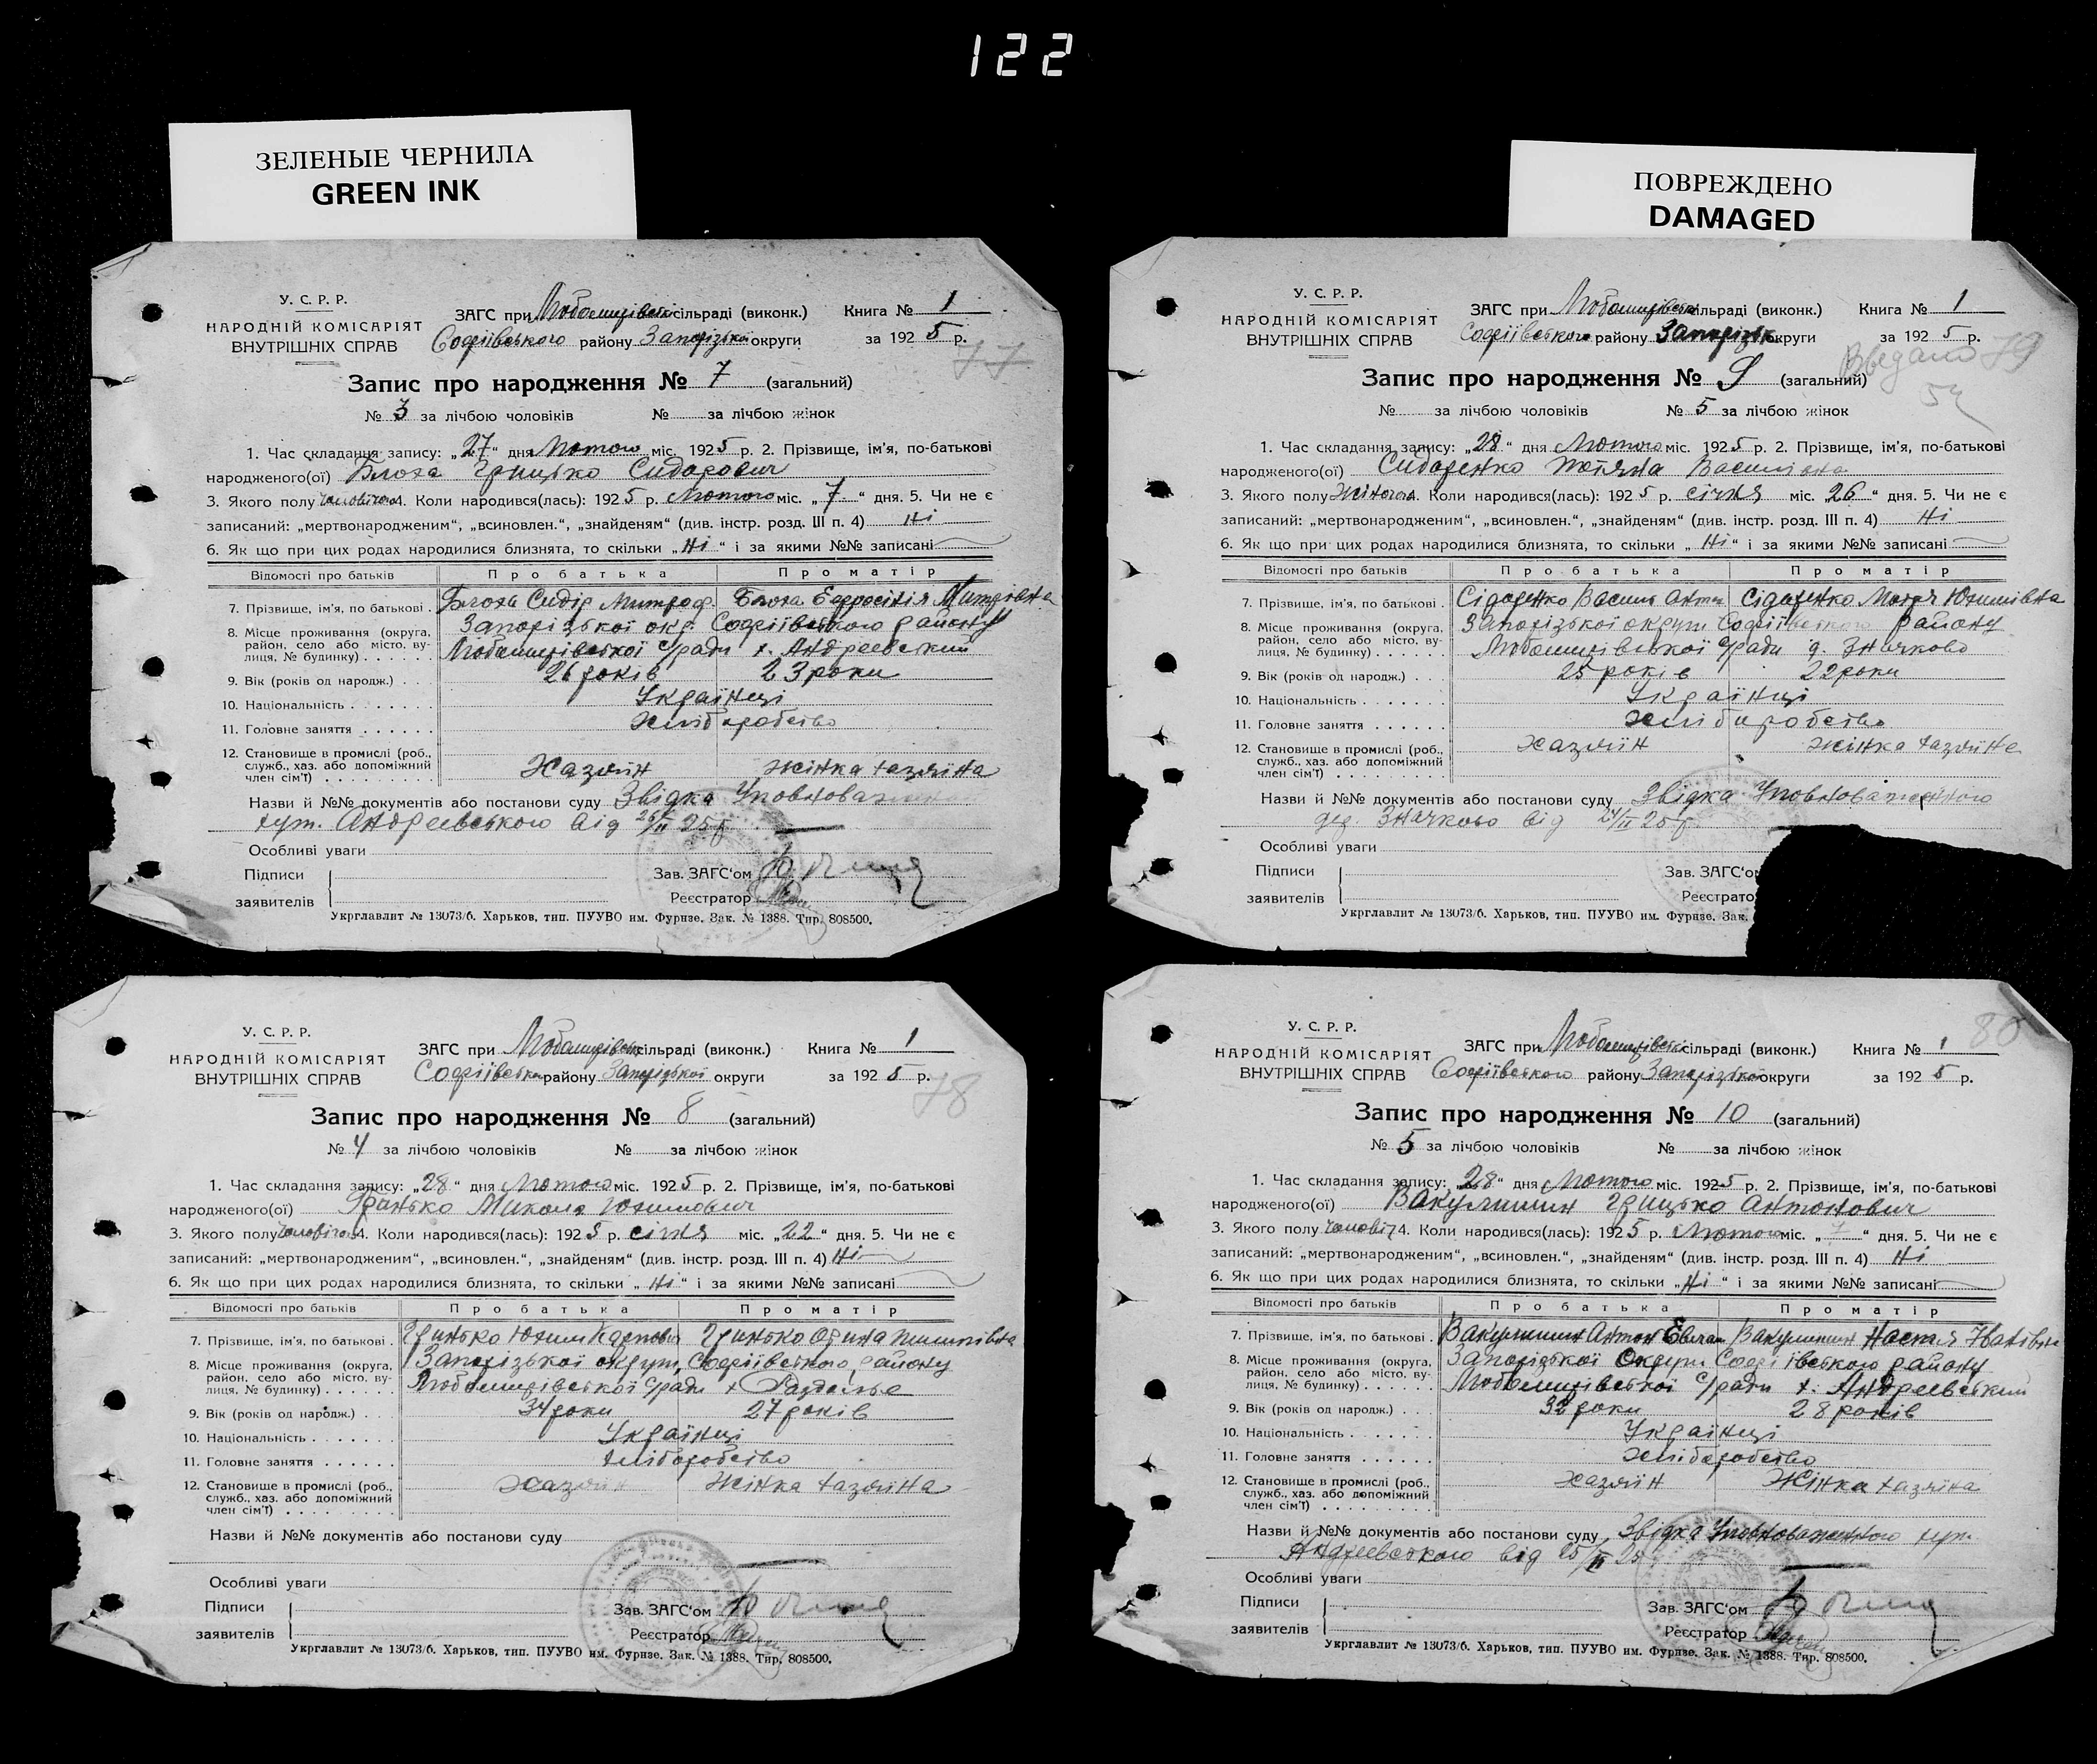 122
ЗЕЛЕНЫЕ ЧЕРНИЛА
GREEN INK
У. С. Р. Р.
НАРОДНІЙ КОМІСАРІЯТ
ВНУТРІШНІХ СПРАВ
ЗАГС при Любомирівській сільраді (виконк.) Книга № 1
Софіївського району Запорізької округи за 1925 р.
77
Запис про народження № 7 (загальний)
№ 3 за лічбою чоловіків № за лічбою жінок
1. Час складання запису: „27“ дня Лютого міс. 1925 р. 2. Прізвище, ім'я, по-батькові
народженого(ої) Блоха Грицько Сидорович
3. Якого полу чоловічого 4. Коли народився(лась): 1925 р. Лютого міс. „7“ дня. 5. Чи не є
записаний: „мертвонародженим“, „всиновлен.“, „знайденям“ (див. інстр. розд. III п. 4) Ні
6. Як що при цих родах народилися близнята, то скільки „Ні“ і за якими №№ записані
Відомості про батьків Про батька Про матір
7. Прізвище, ім'я, по батькові . Блоха Сидір Митроф. Блоха Евфросинія Митрівна
8. Місце проживання (округа, Запорізької окр. Софіївського району
район, село або місто, ву-
лиця, № будинку) . . . . . . Любомирівської С/ради х. Андреевский
9. Вік (років од народж.) . . 26 років 23 роки
10. Національність . . . . . . . Українці
11. Головне заняття . . . . . . Хліборобство
12. Становище в промислі (роб.,
служб., хаз. або допоміжний Хазяїн Жінка хазяїна
член сім'ї) . . . . . . . . .
Назви й №№ документів або постанови суду Звідка Уповноваженого
хут. Андреевського від 26/II 25 р.
Особливі уваги
Підписи Зав. ЗАГС‘ом
заявителів Реєстратор
Укрглавлит № 13073/6. Харьков, тип. ПУУВО им. Фрунзе. Зак. № 1388. Тир. 808500.
ПОВРЕЖДЕНО
DAMAGED
У. С. Р. Р.
НАРОДНІЙ КОМІСАРІЯТ
ВНУТРІШНІХ СПРАВ
ЗАГС при Любомирівській сільраді (виконк.) Книга № 1
Софіївського району Запорізьк округи за 1925 р.
79
Запис про народження № 9 (загальний)
№ за лічбою чоловіків № 5 за лічбою жінок
1. Час складання запису: „28“ дня Лютого міс. 1925 р. 2. Прізвище, ім'я, по-батькові
народженого(ої) Сидоренко Тетяна Василівна
3. Якого полу Жіночого 4. Коли народився(лась): 1925 р. січня міс. 26“ дня. 5. Чи не є
записаний: „мертвонародженим“, „всиновлен.“, „знайденям“ (див. інстр. розд. III п. 4) Ні
6. Як що при цих родах народилися близнята, то скільки „Ні“ і за якими №№ записані
Відомості про батьків Про батька Про матір
7. Прізвище, ім'я, по батькові . Сідоренко Василь Анто Сідоренко Мотря Юхимівна
8. Місце проживання (округа, Запорізької округи Софіївського району
район, село або місто, ву-
лиця, № будинку) . . . . . . Любомирівської С/ради д. Значково
9. Вік (років од народж.) . . . 25 років 22 роки
10. Національність . . . . . . . Українці
11. Головне заняття . . . . . . Хліборобство
12. Становище в промислі (роб., Хазяїн Жінка хазяїна
служб., хаз. або допоміжний
член сім'ї) . . . . . . . . .
Назви й №№ документів або постанови суду Звідка Уповноваженого
дер. Значково від 24/II 25 р.
Особливі уваги
Підписи Зав. ЗАГС‘о
заявителів Реєстрато
Укрглавлит № 13073/6. Харьков, тип. ПУУВО им. Фрунзе. Зак.
У. С. Р. Р.
НАРОДНІЙ КОМІСАРІЯТ
ВНУТРІШНІХ СПРАВ
ЗАГС при Любомирівській сільраді (виконк.) Книга № 1
Софіївського району Запорізької округи за 1925 р.
78
Запис про народження № 8 (загальний)
№ 4 за лічбою чоловіків № за лічбою жінок
1. Час складання запису: „28“ дня Лютого міс. 1925 р. 2. Прізвище, ім'я, по-батькові
народженого(ої) Гринько Микола Юхимович
3. Якого полу чоловічого 4. Коли народився(лась): 1925 р. січня міс. „22“ дня. 5. Чи не є
записаний: „мертвонародженим“, „всиновлен.“, „знайденям“ (див. інстр. розд. III п. 4) Ні
6. Як що при цих родах народилися близнята, то скільки „Ні“ і за якими №№ записані
Відомості про батьків Про батька Про матір
7. Прізвище, ім'я, по батькові . Гринько Юхим Карпович Гринько Орина Пилипівна
8. Місце проживання (округа, Запорізької округи, Софіївського району
район, село або місто, ву-
лиця, № будинку) . . . . . Любомирівської С/ради х. Раздолье
9. Вік (років од народж.) . . . 34 роки 27 років
10. Національність . . . . . . . Українці
11. Головне заняття . . . . . . Хліборобство
12. Становище в промислі (роб., Хазяїн Жінка хазяїна
служб., хаз. або допоміжний
член сім'ї) . . . . . . . . .
Назви й №№ документів або постанови суду
Особливі уваги
Підписи Зав. ЗАГС‘ом
заявителів Реєстратор
Укрглавлит № 13073/6. Харьков, тип. ПУУВО им. Фрунзе. Зак. № 1388. Тир. 808500.
У. С. Р. Р.
НАРОДНІЙ КОМІСАРІЯТ
ВНУТРІШНІХ СПРАВ
ЗАГС при Любомирівській сільраді (виконк.) Книга № 1
Софіївського району Запорізької округи за 1925 р.
80
Запис про народження № 10 (загальний)
№ 5 за лічбою чоловіків № за лічбою жінок
1. Час складання запису: „28“ дня Лютого міс. 1925 р. 2. Прізвище, ім'я, по-батькові
народженого(ої) Вакулишин Грицько Антонович
3. Якого полу чоловіч 4. Коли народився(лась): 1925 р. Лютого міс. „7“ дня. 5. Чи не є
записаний: „мертвонародженим“, „всиновлен.“, „знайденям“ (див. інстр. розд. III п. 4) Ні
6. Як що при цих родах народилися близнята, то скільки „Ні“ і за якими №№ записані
Відомості про батьків Про батька Про матір
7. Прізвище, ім'я, по батькові . Вакулишин Антон Вакулишин Настя Іванівна
8. Місце проживання (округа, Запорізької Округи Софіївського району
район, село або місто, ву-
лиця, № будинку) . . . . . . Любомирівської С/ради х. Андреевський
9. Вік (років од народж.) . . . 32 роки 28 років
10. Національність . . . . . . . Українці
11. Головне заняття . . . . . . Хліборобство
12. Становище в промислі (роб., Хазяїн Жінка хазяїна
служб., хаз. або допоміжний
член сім'ї) . . . . . . . . .
Назви й №№ документів або постанови суду Звідка Уповноваженного хут.
Андреевського від 25/II 25
Особливі уваги
Підписи Зав. ЗАГС‘ом
заявителів Реєстратор
Укрглавлит № 13073/6. Харьков, тип. ПУУВО им. Фрунзе. Зак. № 1388. Тир. 808500.